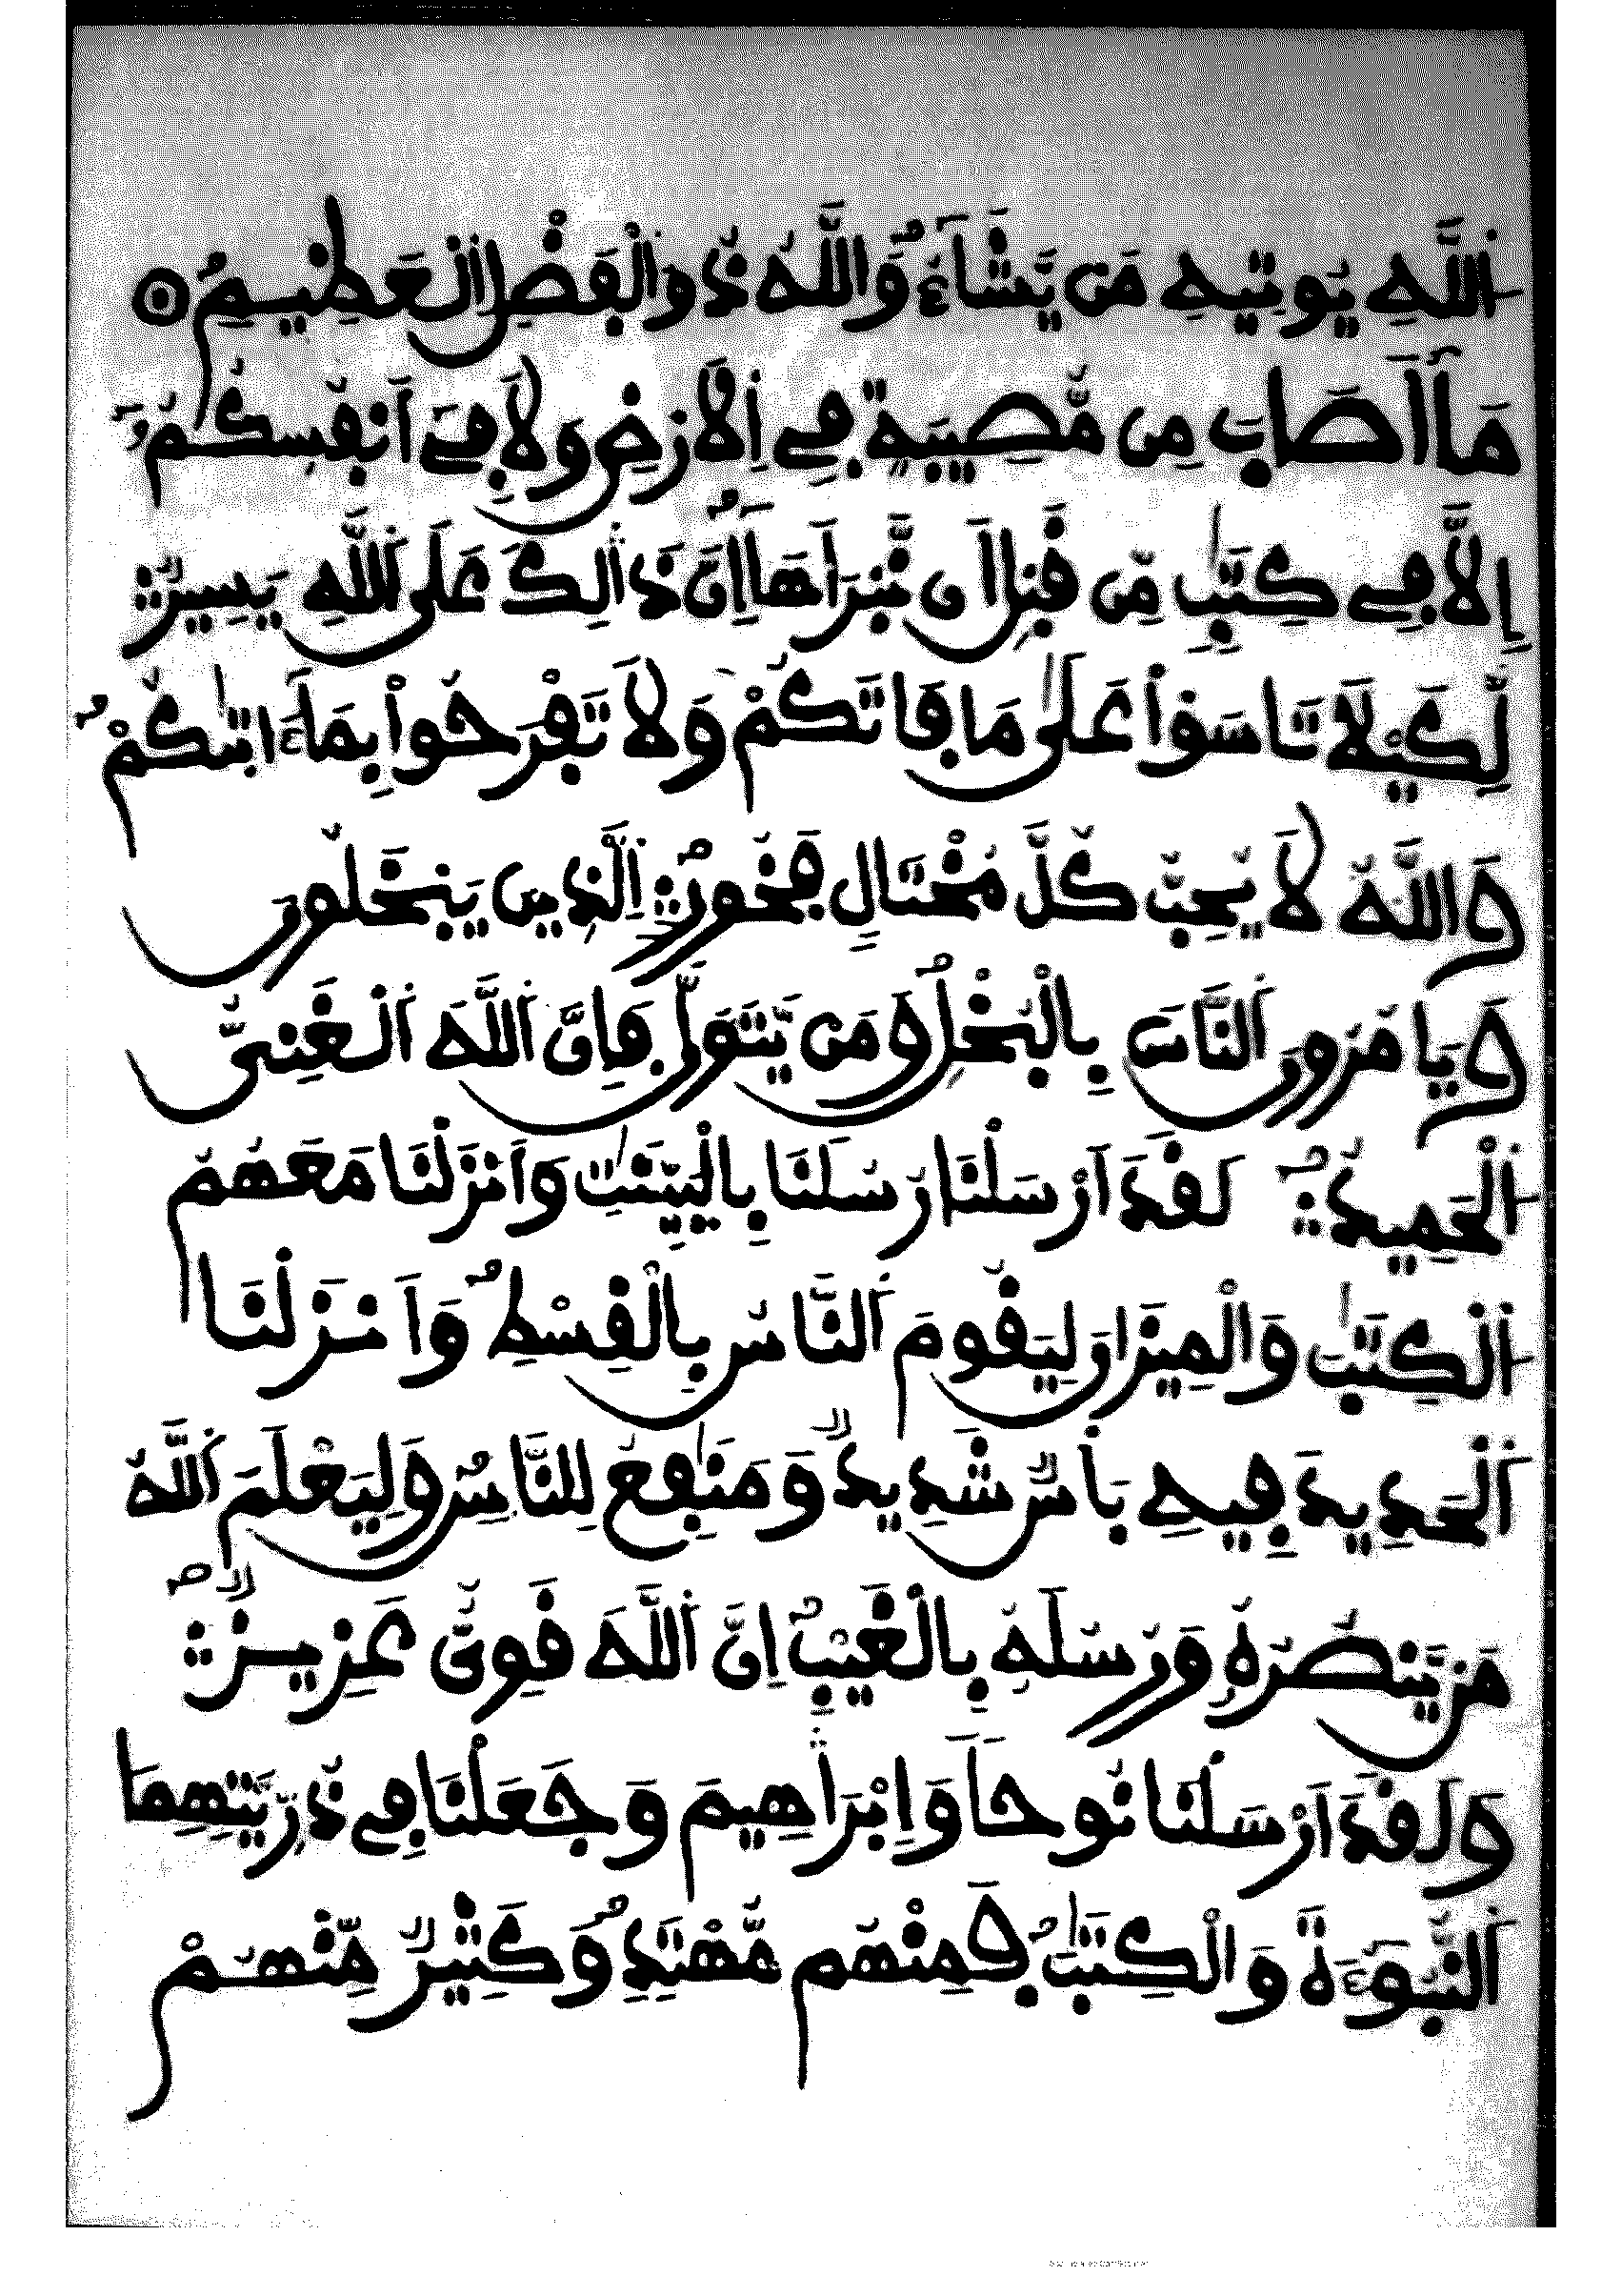 اِ۬للَّهِ يُوتِيهِ مَنْ يَّشَآءُ وَاللَّهُ ذُو اُ۬لْفَضْلِ اِ۬لْعَظِيمِ
مَآ أَصَابَ مِن مُّصِيبَةٖ فِے اِ۬لَارْضِ وَلَا فِےٓ أَنفُسِكُمُۥٓ
إِلَّا فِے كِتَٰبٖ مِّن قَبْلِ أَن نَّبْرَأَهَآ إِنَّ ذَٰلِكَ عَلَى اَ۬للَّهِ يَسِيرٞ
لِّكَيْلَا تَاسَوْاْ عَلَىٰ مَا فَاتَكُمْ وَلَا تَفْرَحُواْ بِمَآ ءَاتَىٰكُمْ
وَاللَّهُ لَا يُحِبُّ كُلَّ مُخْتَالٖ فَخُورٍ اِ۬لذِينَ يَبْخَلُونَ
وَيَامُرُونَ اَ۬لنَّاسَ بِالْبُخْلِ وَمَنْ يَّتَوَلَّ فَإِنَّ اَ۬للَّهَ اَ۬لْغَنِيُّ
اُ۬لْحَمِيدُ لَقَدَ اَرْسَلْنَا رُسُلَنَا بِالْبَيِّنَٰتِ وَأَنزَلْنَا مَعَهُمُ
اُ۬لْكِتَٰبَ وَالْمِيزَانَ لِيَقُومَ اَ۬لنَّاسُ بِالْقِسْطِ وَأَنزَلْنَا
اَ۬لْحَدِيدَ فِيهِ بَأْسٞ شَدِيدٞ وَمَنَٰفِعُ لِلنَّاسِ وَلِيَعْلَمَ اَ۬للَّهُ
مَنْ يَّنصُرُهُۥ وَرُسُلَهُۥ بِالْغَيْبِ إِنَّ اَ۬للَّهَ قَوِيٌّ عَزِيزٞ
وَلَقَدَ اَرْسَلْنَا نُوحاٗ وَإِبْرَٰهِيمَ وَجَعَلْنَا فِے ذُرِّيَّتِهِمَا
اَ۬لنُّبُوٓءَةَ وَالْكِتَٰبَ فَمِنْهُم مُّهْتَدٖ وَكَثِيرٞ مِّنْهُمْ